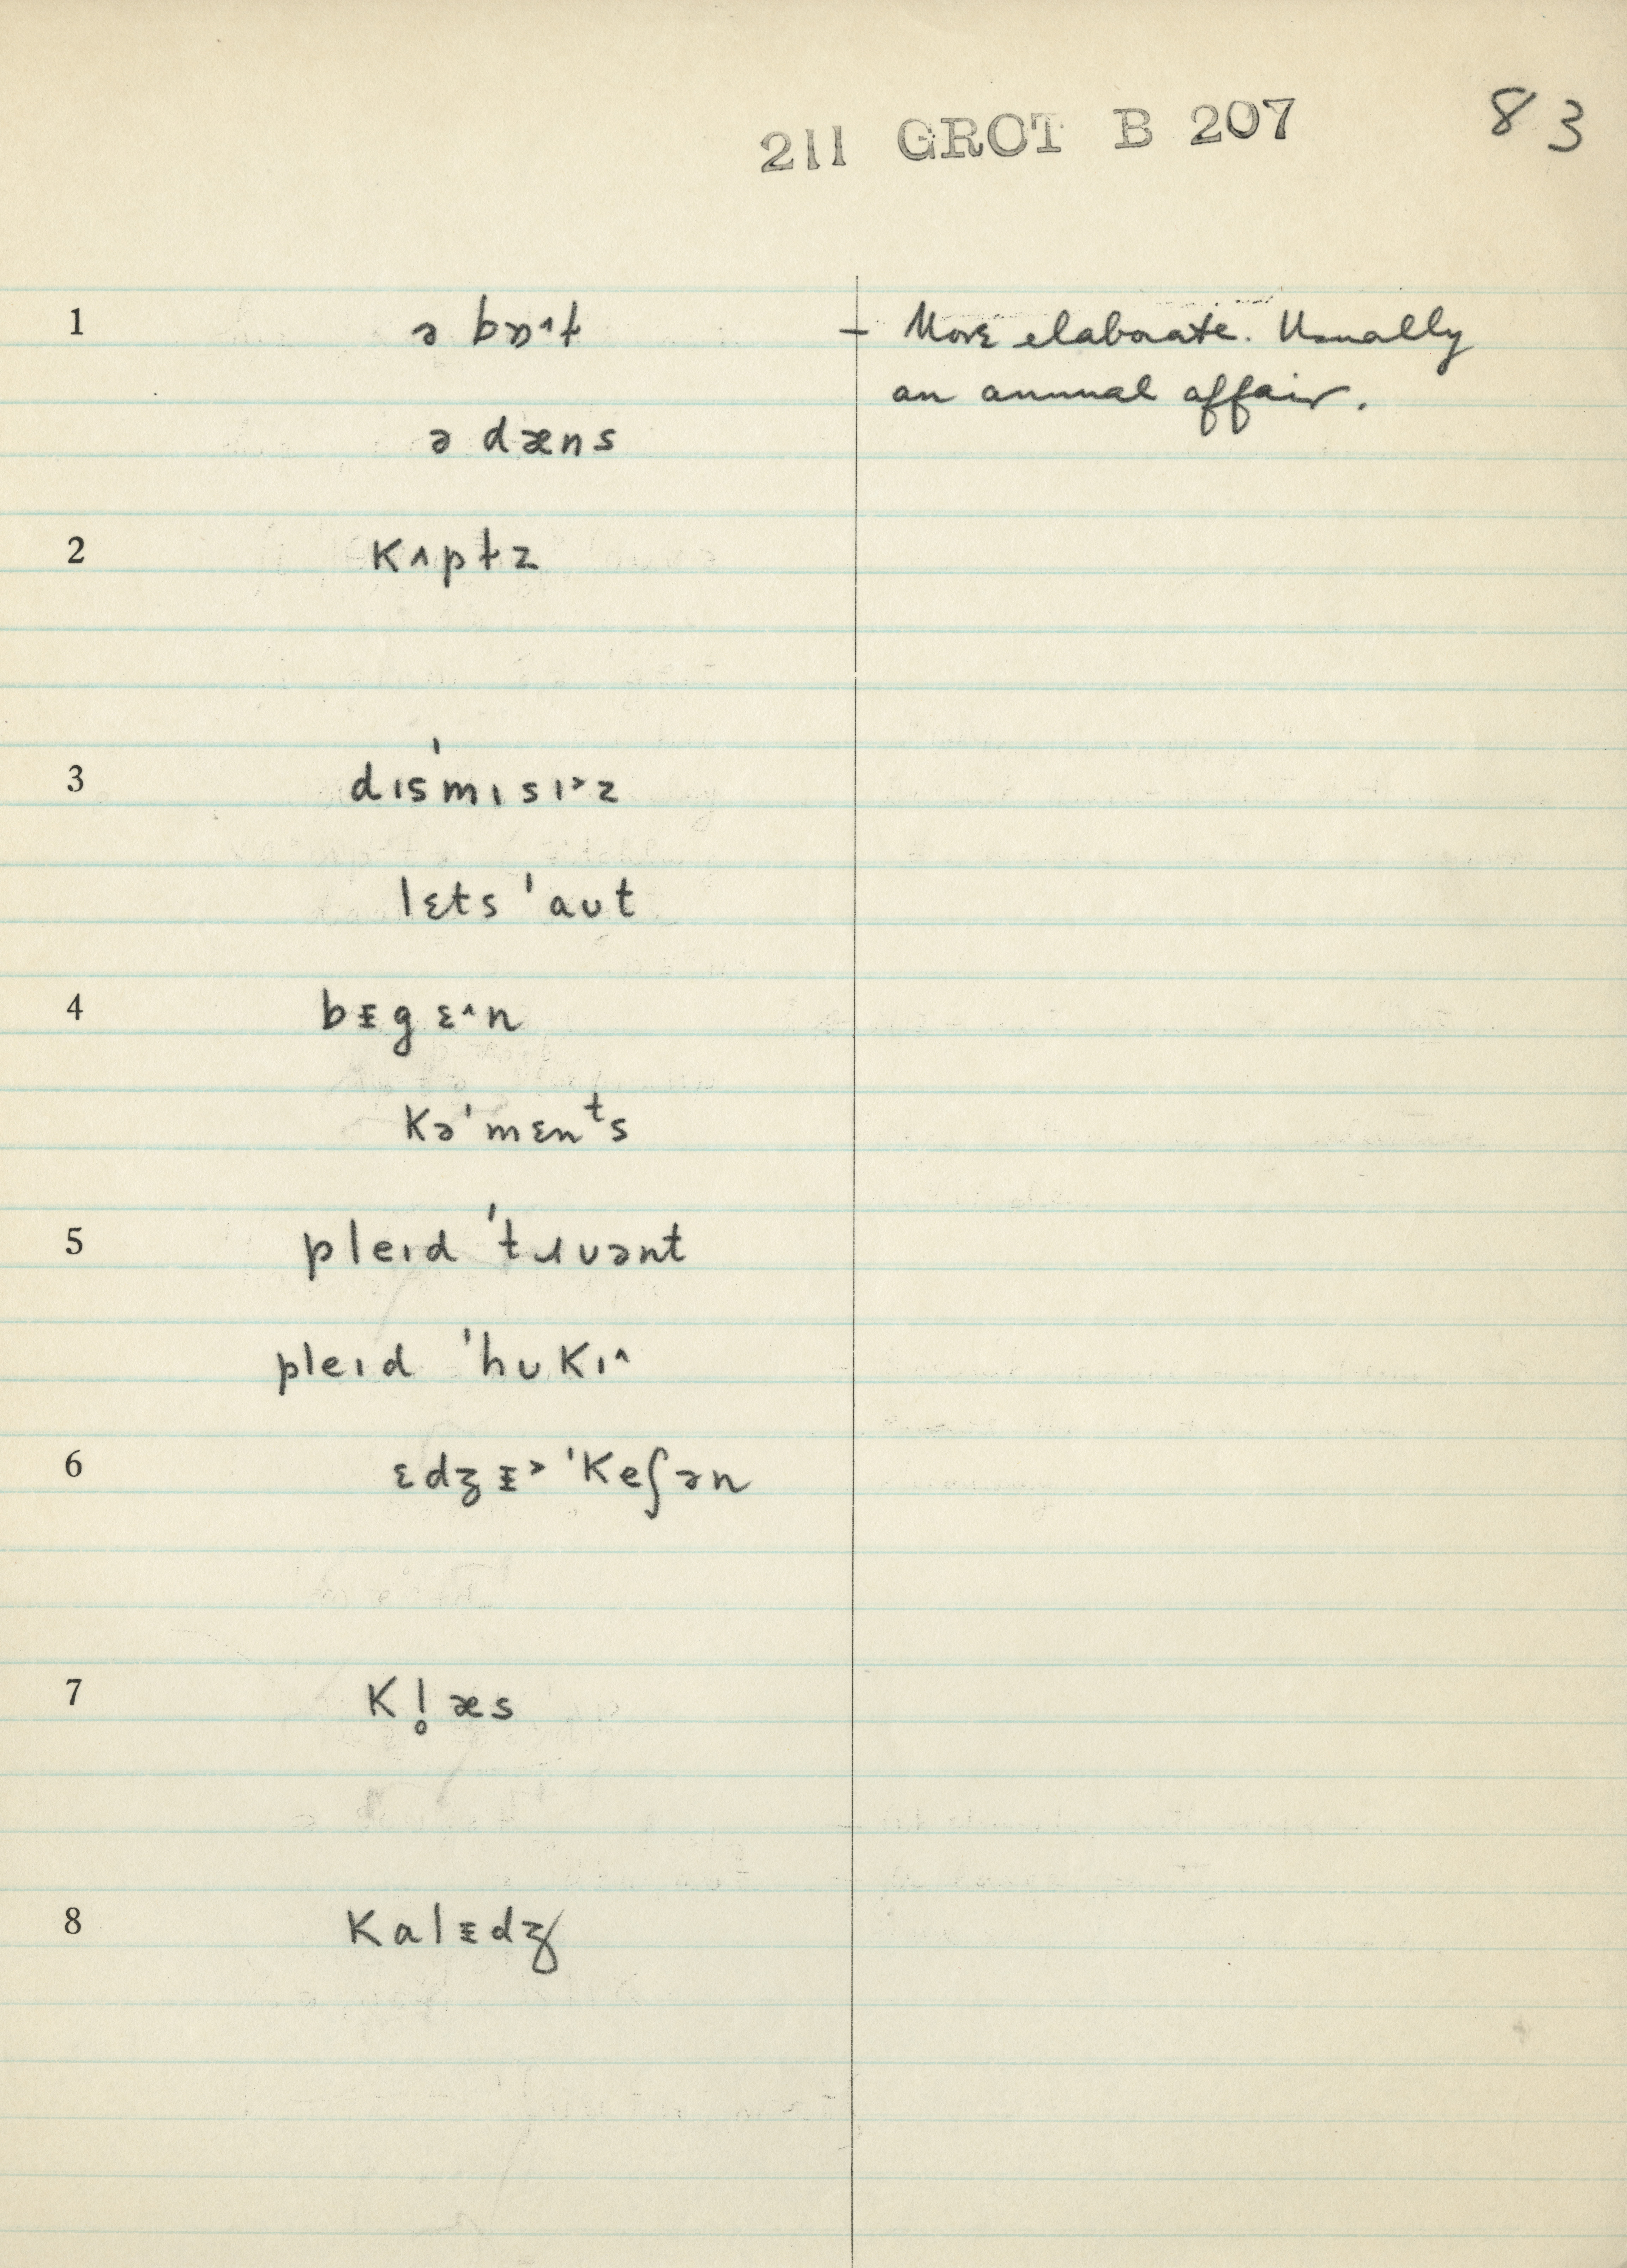 211 GROT B 207 83
1 ə bɒ˄ɫ – More elaborate. Usually
an annual affair.
ə dæns
2 kʌpɫz
3 dɪsˈmɪsɪ˃z
lɛts ˈaʊt
4 bᵻgɛ˄n
kəˈmɛnᵗs
5 pleɪd ˈtɹuənt
pleɪd ˈhʊkɪ˄
6 ɛdʒᵻ˃ˈkeʃən
7 kl̥æs
8 kalᵻdʒ